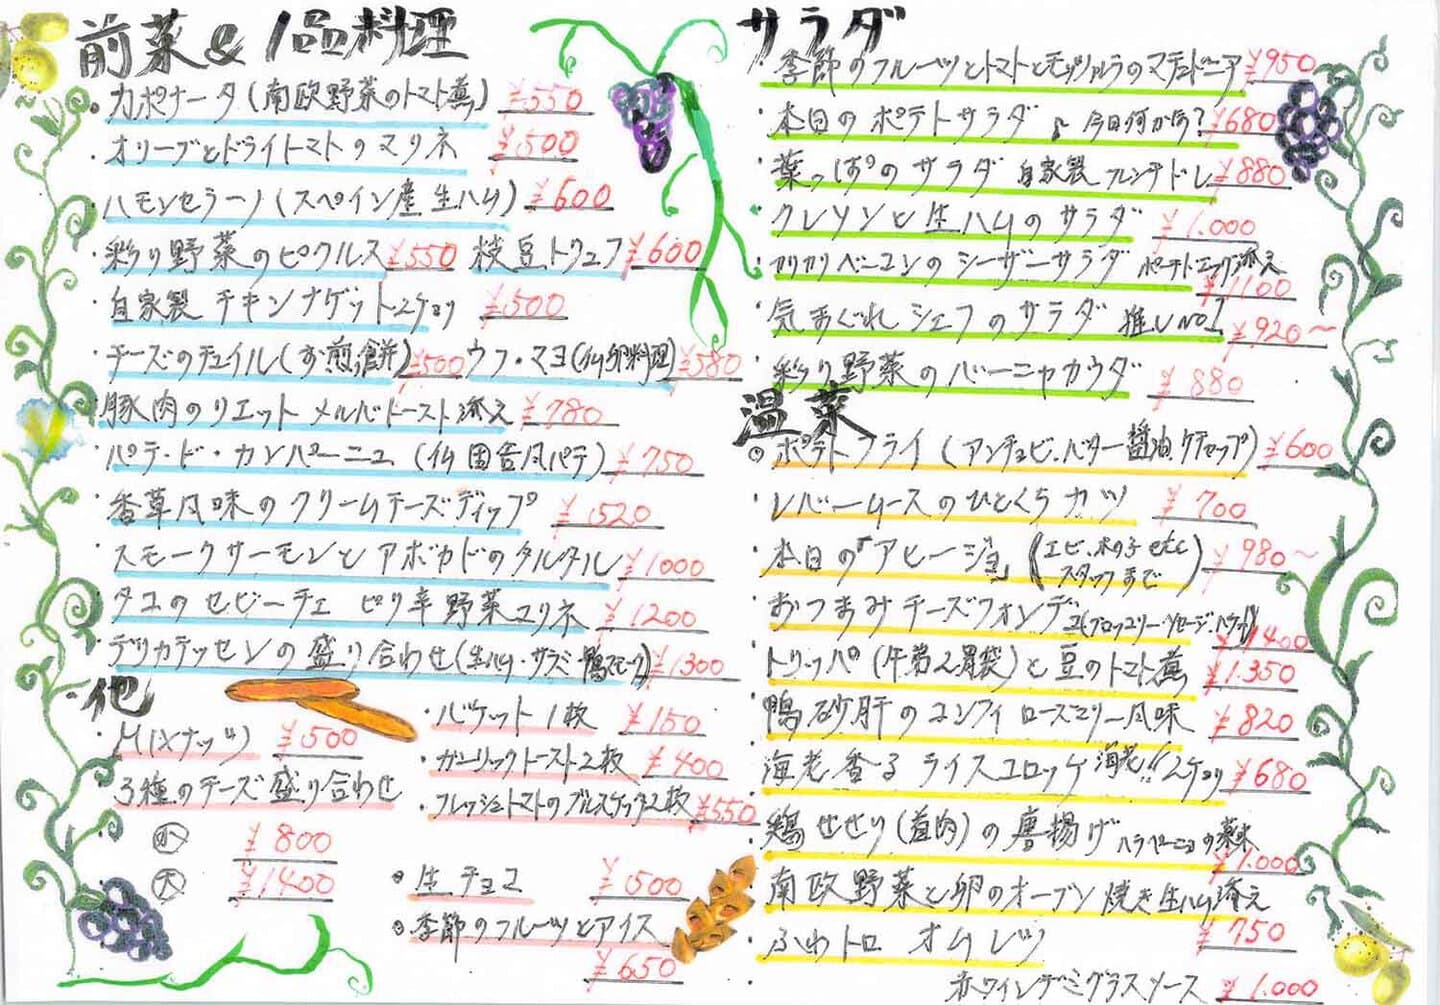 前菜& 1品料理
・カポナータ(南欧野菜のトマト煮) ¥550
・オリーブとドライトマトのマリネ ¥500
・ハモンセラーノ(スペイン産生ハム) ¥600
・彩り野菜のピクルス ¥550 枝豆トリュフ ¥600
・自家製チキンナゲット 2ケヨリ ¥500
・チーズのチュイル(お煎餅) ¥500 ウフ・マヨ(仏卵料理) ¥580
・豚肉のリエット メルバトースト添え ¥780
・パテ・ド・カンパーニュ (仏 田舎風パテ) ¥750
・香草風味のクリームチーズディップ ¥520
・スモークサーモンとアボカドのタルタル ¥1000
・タコのセビーチェ ピリ辛野菜マリネ ¥1200
・デリカテッセンの盛り合わせ(生ハム・サラミ・鴨スモーク) ¥1300
・他
MIXナッツ ¥500
3種のチーズ盛り合わせ
小 ¥800
大 ¥1400
・バケット1枚 ¥150
・ガーリックトースト2枚 ¥400
・フレッシュトマトのブルスケッタ2枚 ¥550
・生チョコ ¥500
・季節のフルーツとアイス
¥650
サラダ
・季節のフルーツとトマトとモッツァレラのマチェドニア ¥950
・本日のポテトサラダ ♪今日何かな? ¥680
・葉っぱのサラダ 自家製フレンチドレ ¥880
・クレソンと生ハムのサラダ ¥1.000
・カリカリベーコンのシーザーサラダ ポーチドエッグ添え
¥1100
・気まぐれシェフのサラダ 推しNo.1 ¥920〜
・彩り野菜のバーニャカウダ ¥880
温菜
・ポテトフライ(アンチョビ.バター醤油.ケチャップ) ¥600
・レバームースのひとくちカツ ¥700
・本日の「アヒージョ」 (エビ、木の子etc ¥980〜
スタッフまで)
・おつまみチーズフォンデュ(ブロッコリー・ソーセージ.バケット)
¥1400
・トリッパ(牛第2胃袋)と豆のトマト煮 ¥1.350
・鴨砂肝のコンフィ ローズマリー風味 ¥820
・海老香るライスコロッケ 海老!! 2ケヨリ ¥680
・鶏せせり(首肉)の唐揚げ ハラペーニョの薬味
¥1.000
・南欧野菜と卵のオーブン焼き生ハム添え
¥750
・ふわトロ オムレツ
赤ワインデミグラスソース ¥1.000